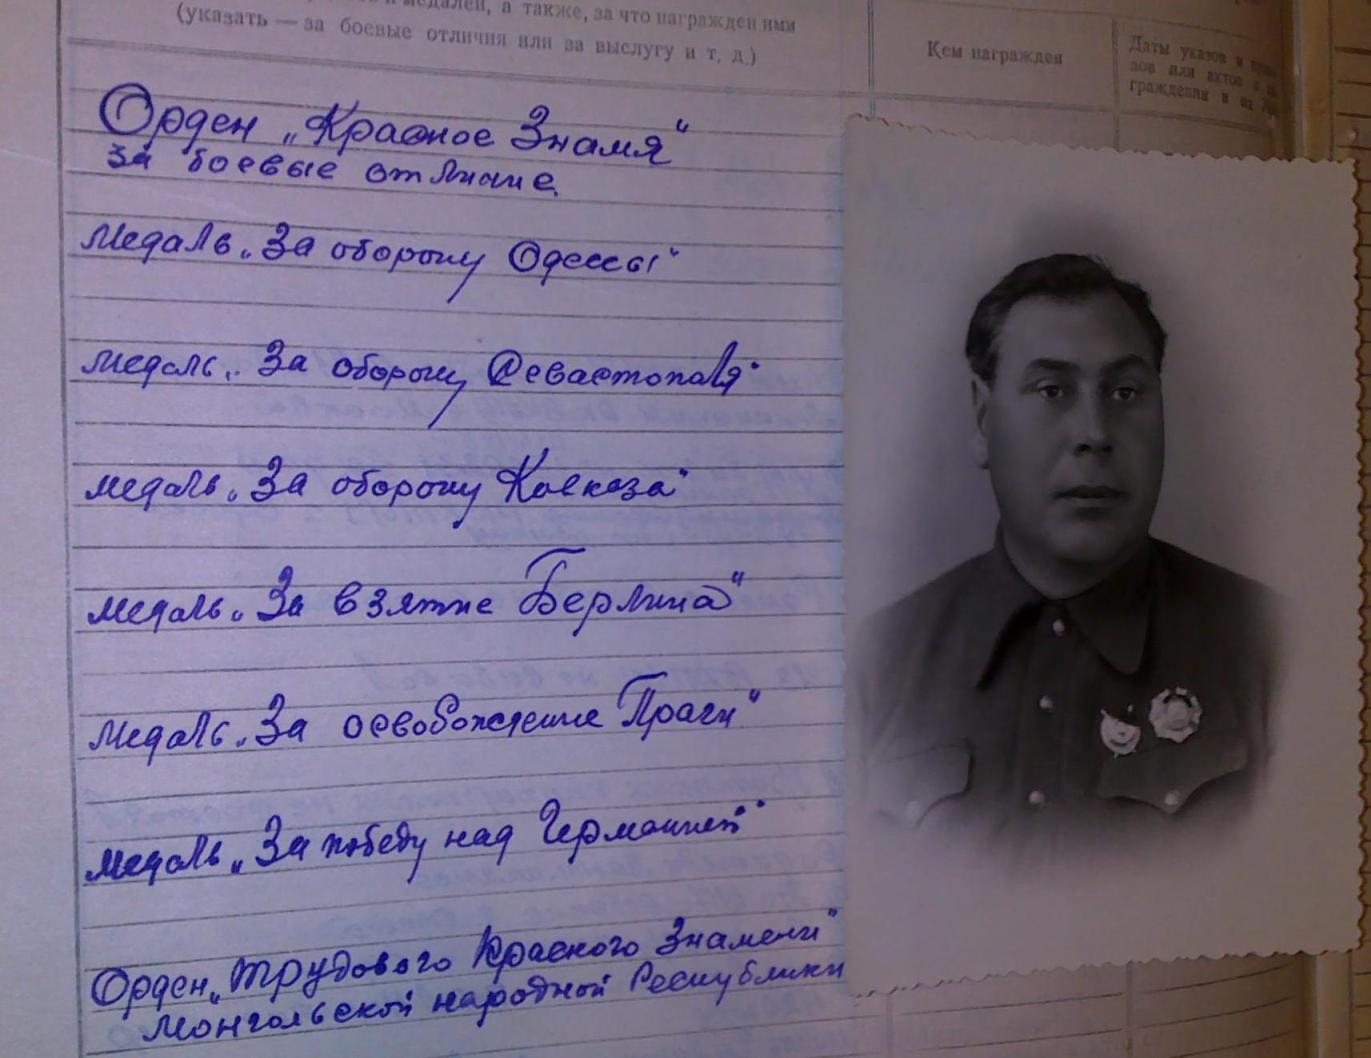 и медалей, а также, за что награжден ими
(указать — за боевые отличия или за выслугу и т. д.)
Кем награжден
Даты указов и
зов или актов о
граждении и их
Орден „Красное Знамя“
за боевые отличие
Медаль „За оборону Одессы“
медаль „За оборону Севастополя“
медаль „За оборону Кавказа“
медаль „За взятие Берлина“
медаль „За освобождение Праги“
медаль „За победу над Германией“
Орден „Трудового Красного Знамени“
Монгольской народной Республики